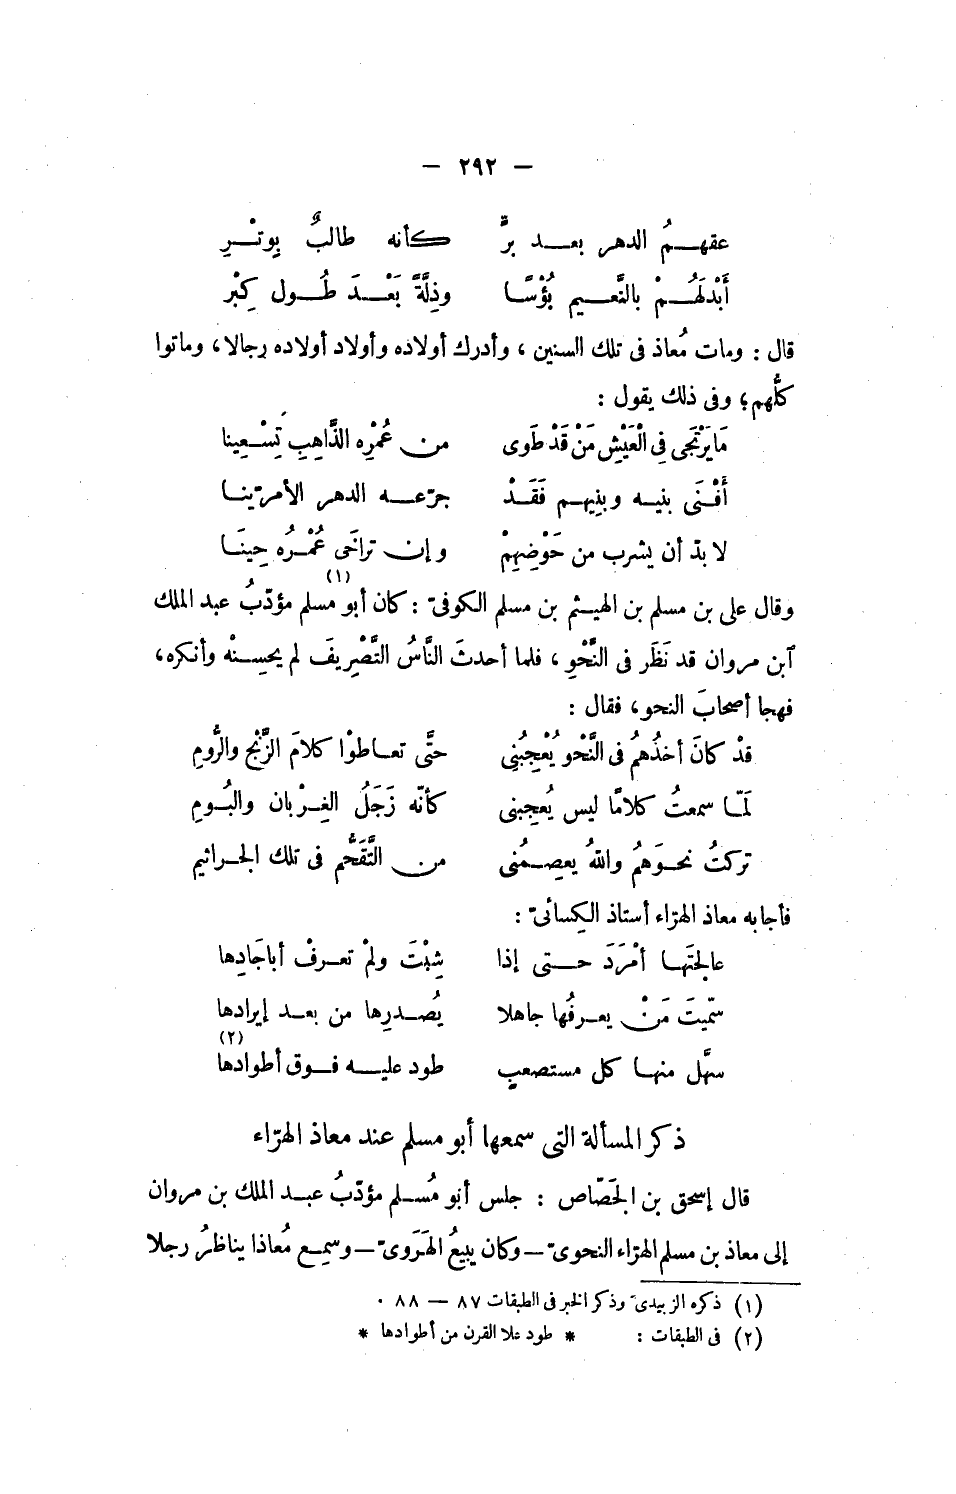 — ٢٩٢ —
عقهـــمُ الدهر بعـــد برٍّ كأنه طالبٌ بِوتْـــرِ
أَبْدَلَهُـــمْ بالنَّعـــيم بُؤْسًـــا وذِلَّةً بَعْـــدَ طُـــول كِبْر
قال : ومات مُعاذ فى تلك السنين ، وأدرك أولاده وأولاد أولاده رجالا، وماتوا
كلُّهم؛ وفى ذلك يقول :
مَا يَرْتَجى فِى الْعَيْشِ مَنْ قَدْ طَوى مـن عُمْرِه الذَّاهِبِ تِسْـعِينا
أَفْـنَى بنيـه وبنِيهـم فَقَـدْ جرّعـــه الدهـر الأمرّينـا
لا بدّ أن يشرب من حَوْضِهِمْ وإن تراخَى عُمْـرُه حِينَـا
وقال على بن مسلم بن الهيـثم بن مسلم الكوفىّ : كان أبو مسلم مؤدّبُ عبد الملك (١)
آبن مروان قد نَظَر فى النَّحْوِ ، فلما أحدثَ النَّاسُ التَّصْرِيفَ لم يحسِـنْه وأنكره،
فهجا أصحابَ النحو، فقال :
قدْ كانَ أخذُهمُ فى النَّحْوِ يُعْجِبُنِى حتَّى تعـاطَوْا كلامَ الزَّنْجِ والرُّومِ
لمَّـا سمعتُ كلامًا ليس يُعجِبنى كأنّه زَجَلُ الغِـرْبان والبُـومِ
تركتُ نحـوَهمُ واللهُ يعصِـمُنى مـن التَّقَحُّم فى تلك الجـراثيم
فأجابه معاذ الهرّاء أستاذ الكِسائىّ :
عالجتَهـا أمْرَدَ حـــتى إذا شِبْتَ ولمْ تعـرفْ أباجَادِها
سمّيتَ مَنْ يعـرفُها جاهلا يُصْـدرِها من بعـد إيرادها
سهَّل منهـا كل مستصعبٍ طود عليـــه فـوق أطوادها (٢)
ذكر المسألة التى سمعها أبو مسلم عند معاذ الهرّاء
قال إسحق بن الجَصّاص : جلس أبو مُسـلم مؤدّبُ عبـد الملك بن مروان
إلى معاذ بن مسلم الهرّاء النحوىّ — وكان يبيعُ الهَرَوىّ — وسمِـع مُعاذا يناظرُ رجلا
(١) ذكره الزبيدىّ وذكر الخبر فى الطبقات ٨٧ — ٨٨ .
(٢) فى الطبقات : * طود علا القرن من أطوادها *